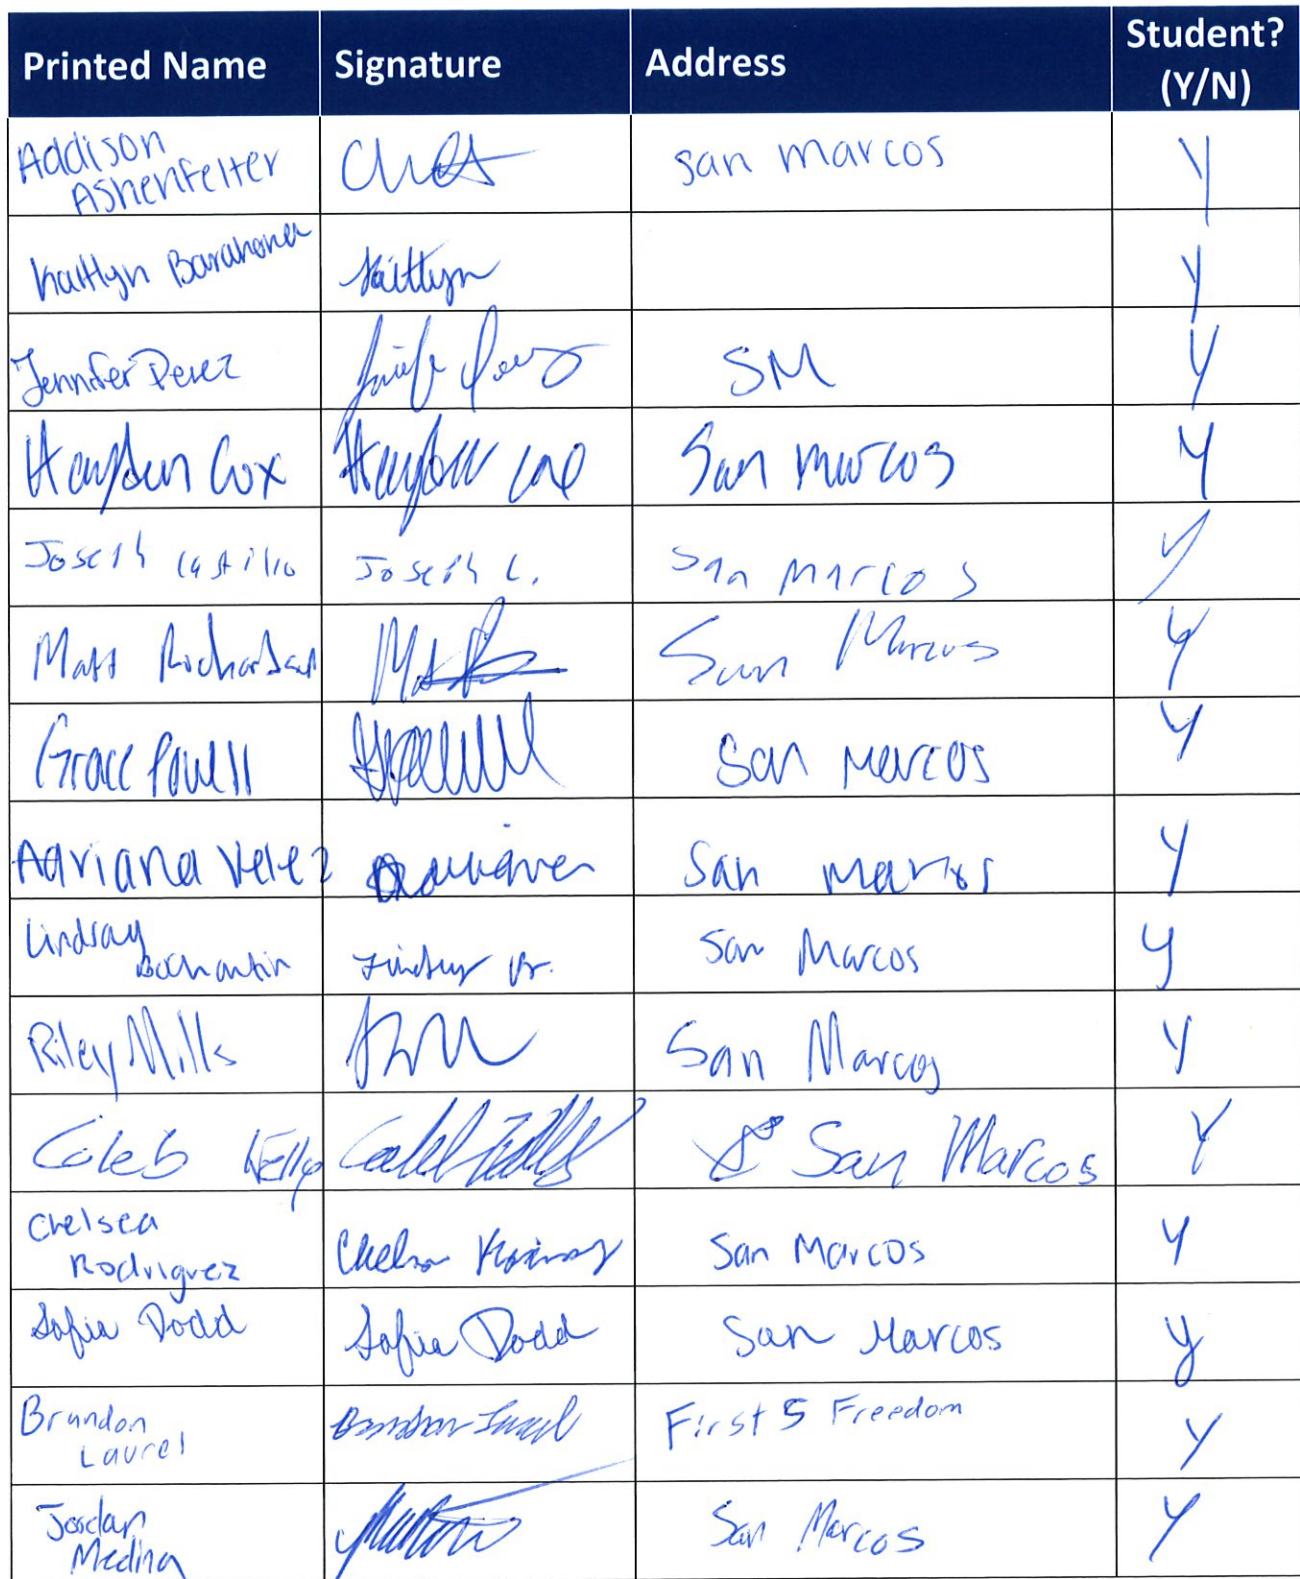 Printed Name Signature Address Student? (Y/N)
Addison Ashenfelter San Marcos Y
Kaitlyn Barahona Kaitlyn Y
Jennifer Perez SM Y
Hayden Cox Hayden Cox San Marcos Y
Joseph Castillo Joseph C. San Marcos Y
Matt Richardson San Marcos Y
Grace Powell San Marcos Y
Adriana Velez San Marcos Y
Lindsay Bochantin Lindsay B. San Marcos Y
Riley Mills San Marcos Y
Caleb Kelly Caleb Kelly San Marcos Y
Chelsea Rodriguez Chelsea San Marcos Y
Sofia Dodd Sofia Dodd San Marcos y
Brandon Laurel Brandon Laurel First 5 Freedom Y
Jordan Medina San Marcos Y